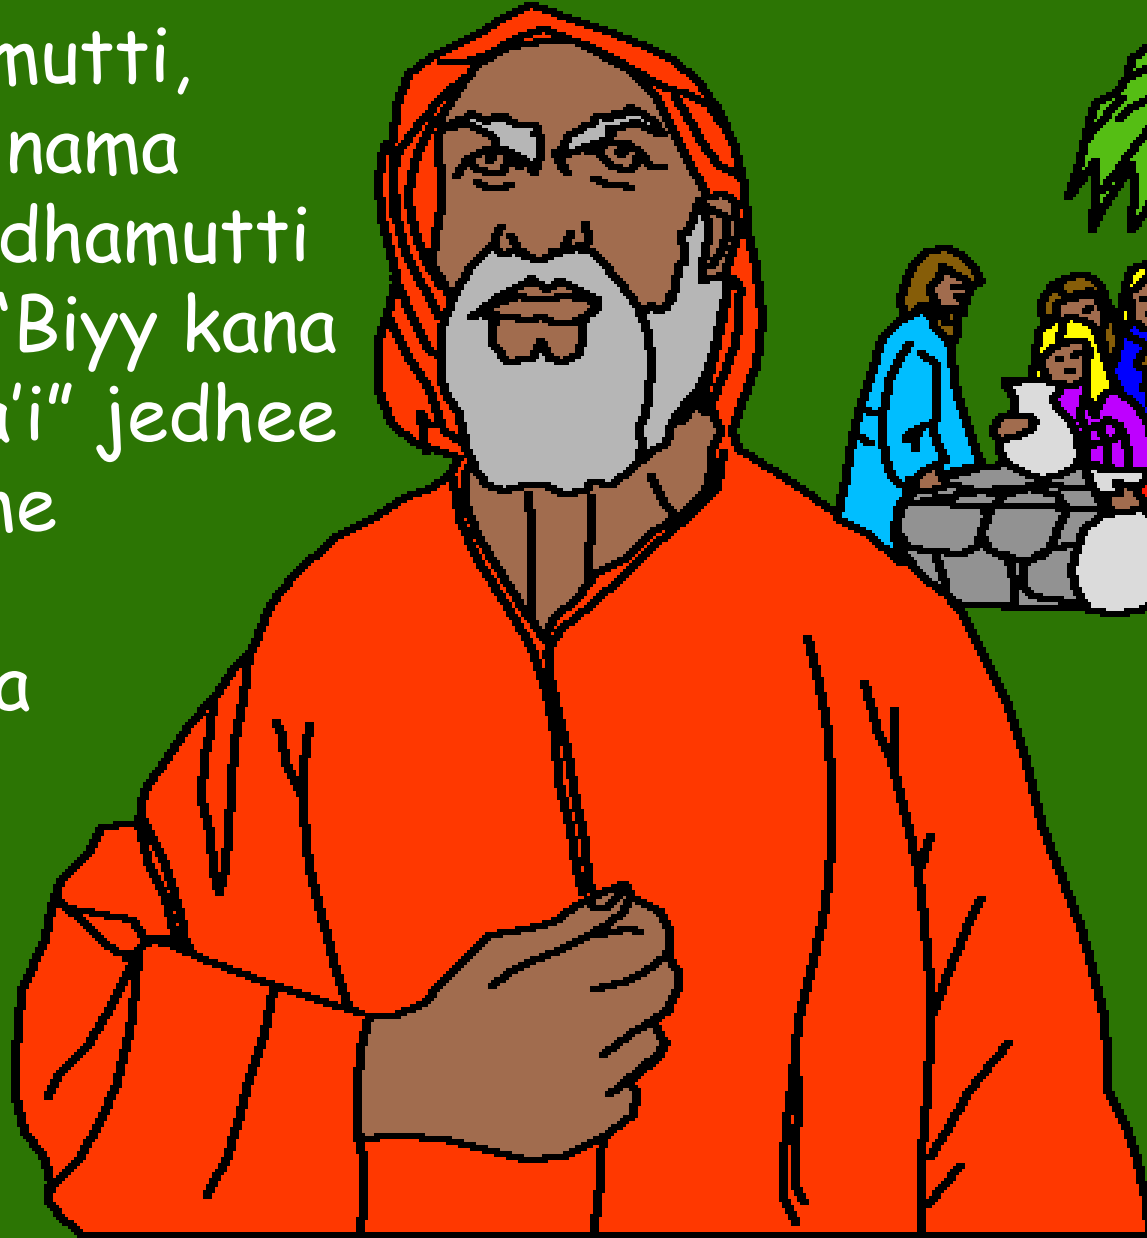 mutti,
nama
dhamutti
‘‘Biyy kana
a’i’’ jedhee
ne
a